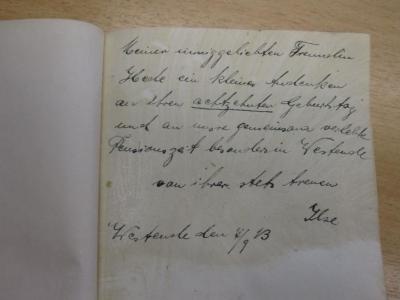 Meiner inniggeliebten Freundin
Hede ein kleines Andenken
an ihren achtzehnten Geburtstag
und an unsre gemeinsam verlebte
Pensionszeit besonders in Westende
von ihrer stets treuen
Ilse
Westende den 4/9 13